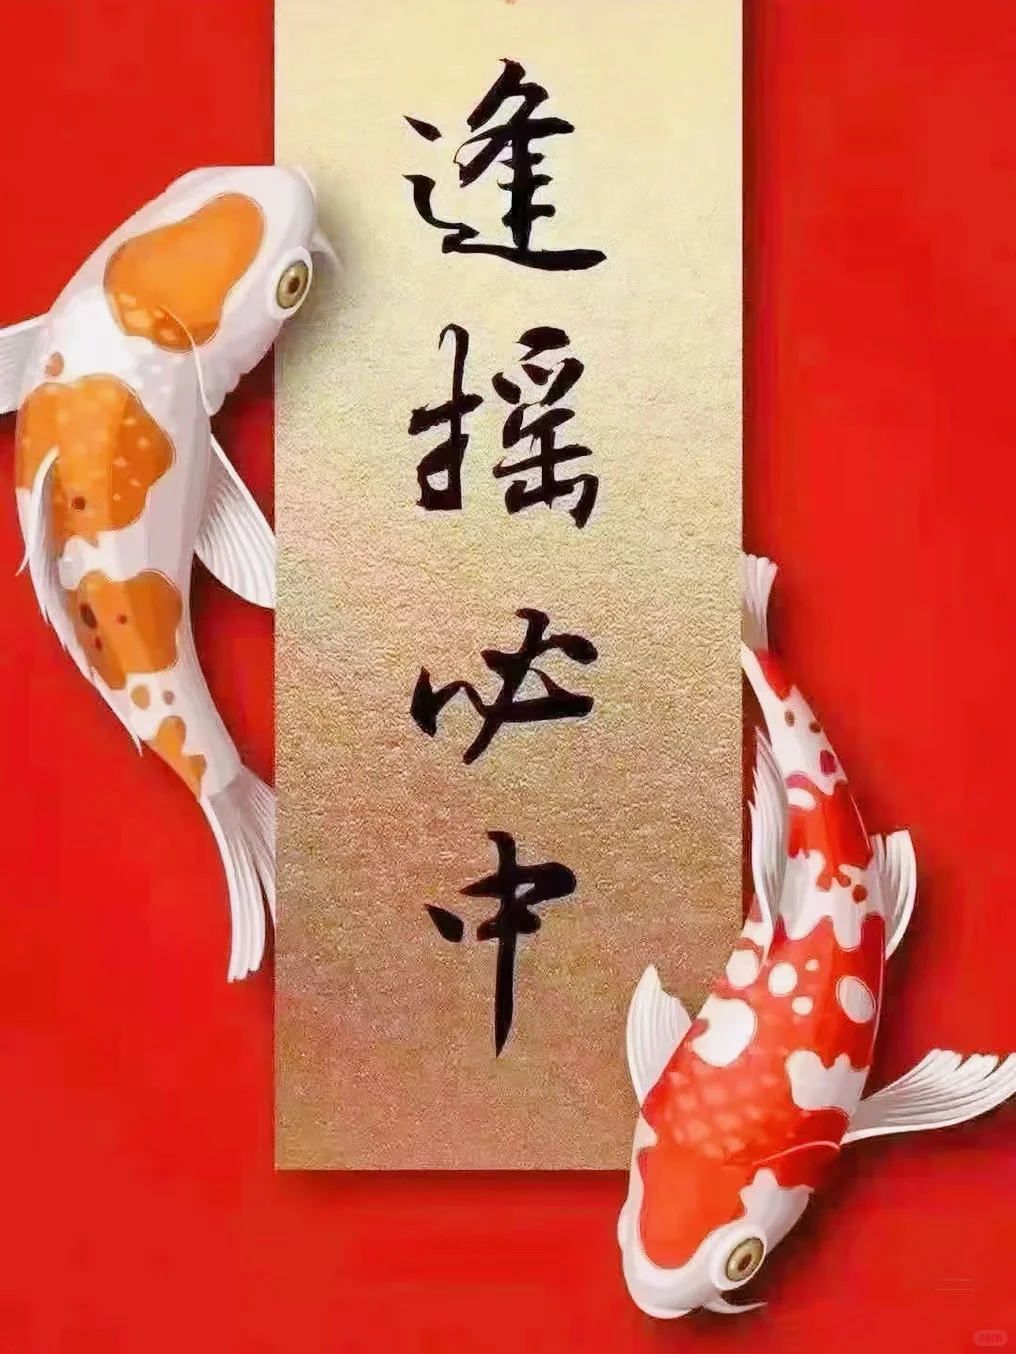 逢摇必中